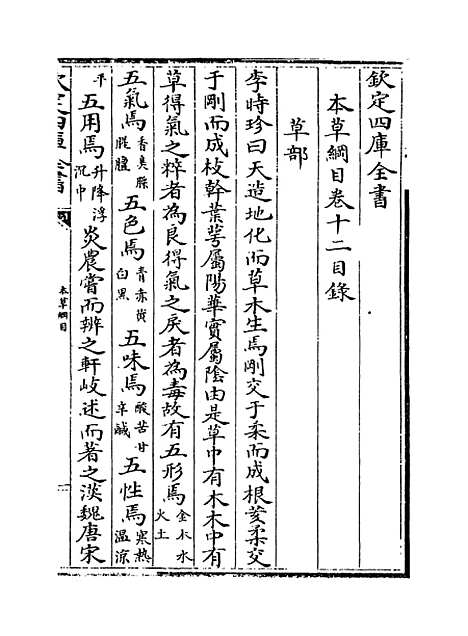 欽定四庫全書
本草綱目卷十二目錄
草部
李時珍曰天造地化而草木生焉剛交于柔而成根荄柔交
于剛而成枝幹葉萼屬陽華實屬陰由是草中有木木中有
草得氣之粹者為良得氣之戾者為毒故有五形焉金木水火土
五氣焉香臭臊腥膻五色焉青赤黃白黑五味焉酸苦甘辛鹹五性焉寒熱溫涼
平五用焉升降浮沉中炎農嘗而辨之軒岐述而著之漢魏唐宋
欽定四庫全書
本草綱目
一